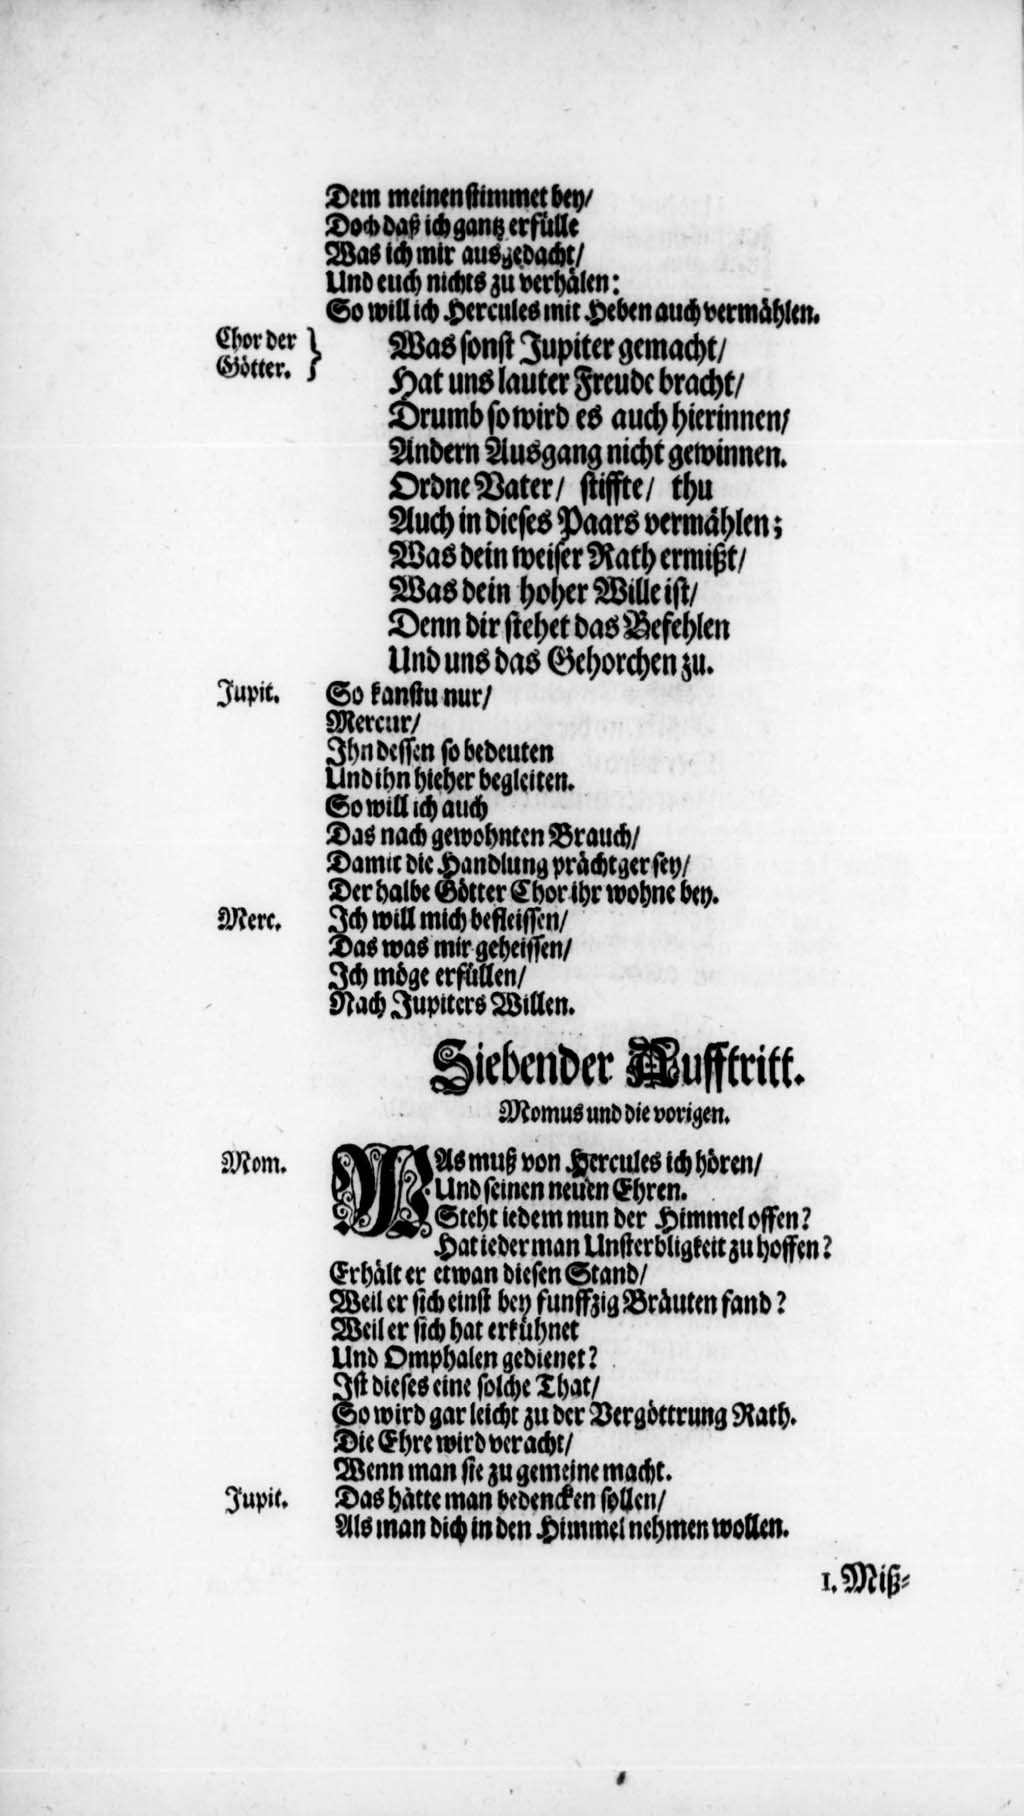 Dem meinen stimmet bey/
Doch daß ich gantz erfülle
Was ich mir ausgedacht/
Und euch nichts zu verhälen:
So will ich Hercules mit Heben auch vermählen.
Chor der Götter. } Was sonst Jupiter gemacht/
Hat uns lauter Freude bracht/
Drumb so wird es auch hierinnen/
Andern Ausgang nicht gewinnen.
Ordne Vater/ stiffte/ thu
Auch in dieses Paars vermählen;
Was dein weiser Rath ermißt/
Was dein hoher Wille ist/
Denn dir stehet das Befehlen
Und uns das Gehorchen zu.
Jupit. So kanstu nur/
Mercur/
Ihn dessen so bedeuten
Und ihn hieher begleiten.
So will ich auch
Das nach gewohnten Brauch/
Damit die Handlung prächtger sey/
Der halbe Götter Chor ihr wohne bey.
Merc. Ich will mich befleissen/
Das was mir geheissen/
Ich möge erfüllen/
Nach Jupiters Willen.
Siebender Aufftritt.
Momus und die vorigen.
Mom. WAs muß von Hercules ich hören/
Und seinen neuen Ehren.
Steht iedem nun der Himmel offen?
Hat iederman Unsterbligkeit zu hoffen?
Erhält er etwan diesen Stand/
Weil er sich einst bey funffzig Bräuten fand?
Weil er sich hat erkühnet
Und Omphalen gedienet?
Ist dieses eine solche That/
So wird gar leicht zu der Vergöttrung Rath.
Die Ehre wird veracht/
Wenn man sie zu gemeine macht.
Jupit. Das hätte man bedencken sollen/
Als man dich in den Himmel nehmen wollen.
1. Miß-